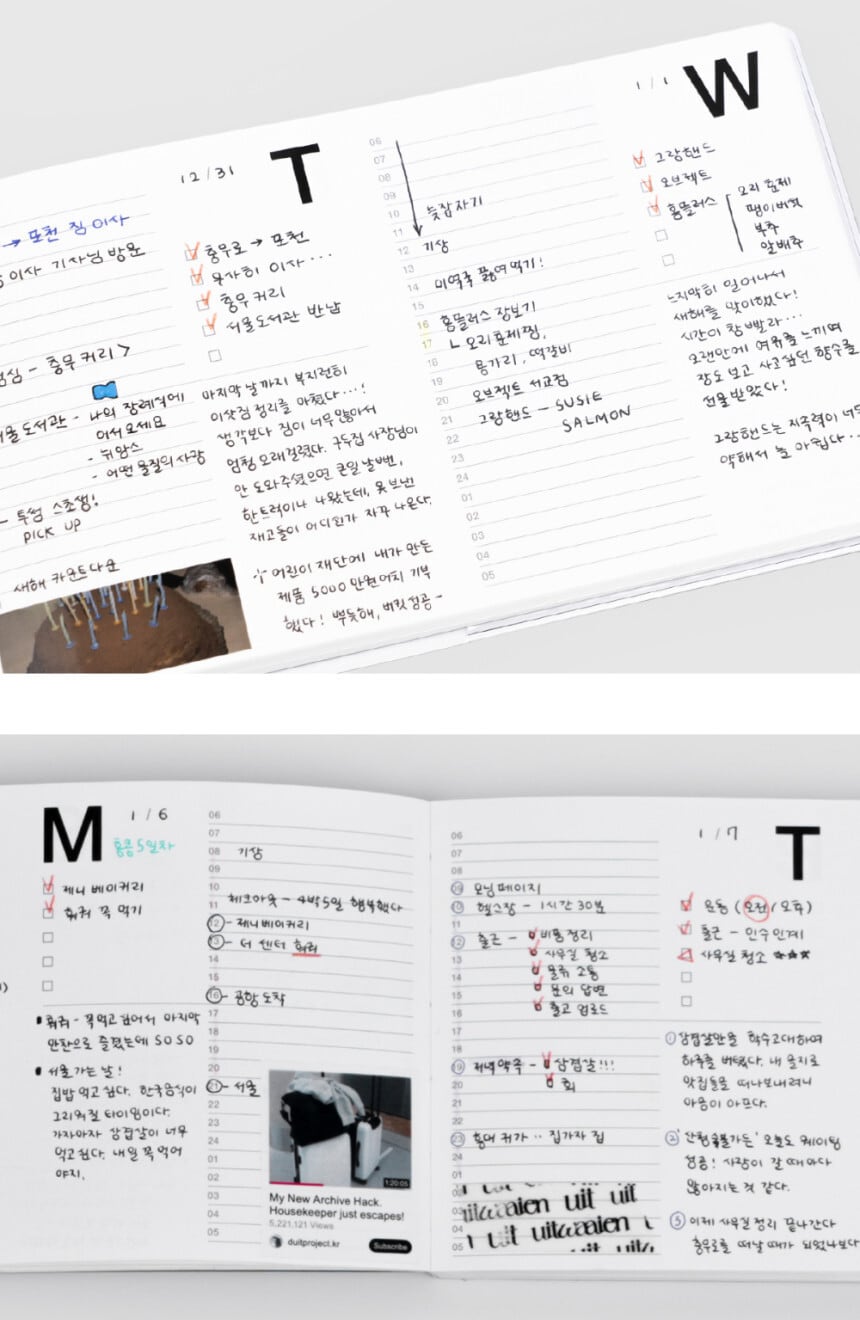 12/31
T
→ 포천 짐 이사
이사 기사님 방문
충무로 → 포천
무사히 이사...
충무 커리
서울도서관 반납
점심 - 충무 커리 >
서울도서관 - 나의 장례식에
어서오세요
- 뉘앙스
- 어떤 물질의 사랑
- 투썸 스초생!
PICK UP
새해 카운트다운
마지막 날까지 부지런히
이삿짐 정리를 마쳤다...!
생각보다 짐이 너무 많아서
엄청 오래걸렸다. 구두집 사장님이
안 도와주셨으면 큰일 날 뻔,
한트럭이나 나왔는데, 못 보낸
재고들이 어디선가 자꾸 나온다.
어린이 재단에 내가 만든
제품 5000만원어치 기부
했다! 뿌듯해, 버킷 성공-
1/1
W
06
07
08
09
10 늦잠 자기
11
12 기상
13
14 미역국 끓여먹기!
15
16 홈플러스 장보기
17 ㄴ 오리훈제찜,
18 용가리, 떡갈비
19
20 오브젝트 서교점
21 그랑핸드 - SUSIE
22 SALMON
23
24
01
02
03
04
05
그랑핸드
오브젝트
홈플러스
오리 훈제
팽이버섯
부추
알배추
느지막히 일어나서
새해를 맞이했다!
시간이 참 빨라...
오랜만에 여유를 느끼며
장도 보고 사고싶던 향수를
선물받았다!
그랑핸드는 지속력이 너무
약해서 늘 아쉽다...
M
1/6
홍콩 5일차
제니 베이커리
훠궈 꼭 먹기
훠궈 - 꼭먹고 싶어서 마지막
만찬으로 즐겼는데 SO SO
서울 가는 날!
집밥 먹고 싶다. 한국음식이
그리워질 타이밍이다.
가자마자 삼겹살이 너무
먹고싶다. 내일 꼭 먹어
야지.
06
07
08 기상
09
10
11 체크아웃 - 4박5일 행복했다
12 - 제니베이커리
13 - 더 센터 훠궈
14
15
16 - 공항 도착
17
18
19
20
21 - 서울
22
23
24
01
02
03
04
05
1:20:05
My New Archive Hack.
Housekeeper just escapes!
5,221,121 Views
duitproject.kr
Subscribe
06
07
08
09 모닝페이지
10 헬스장 - 1시간 30분
11
12 출근 - 비품정리
13 사무실 청소
14 물류 소통
15 문의 답변
16 출고 업로드
17
18
19 저녁약속 - 삼겹살!!!
20 회
21
22
23 홍대 귀가 .. 집가자 집
24
01
02
03
04
05
uit uit
uitwaaien uit uit
uit uitwaaien
1/7
T
운동 (오전/오후)
출근 - 인수인계
사무실 청소 ★★★
① 삼겹살만을 학수고대하며
하루를 버텼다. 내 을지로
맛집들을 떠나보내려니
마음이 아프다.
오늘도 웨이팅
성공! 사람이 갈 때마다
많아지는 것 같다.
③ 이제 사무실 정리 끝나간다
충무로를 떠날 때가 되었나보다